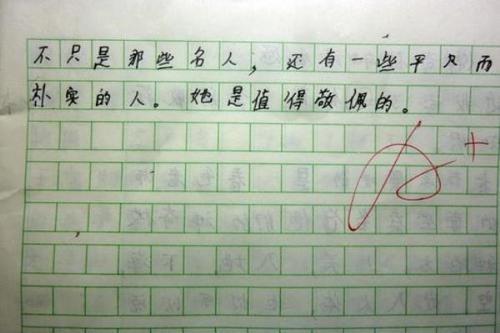 不只是那些名人，还有一些平凡而
朴实的人。她是值得敬佩的。
A+